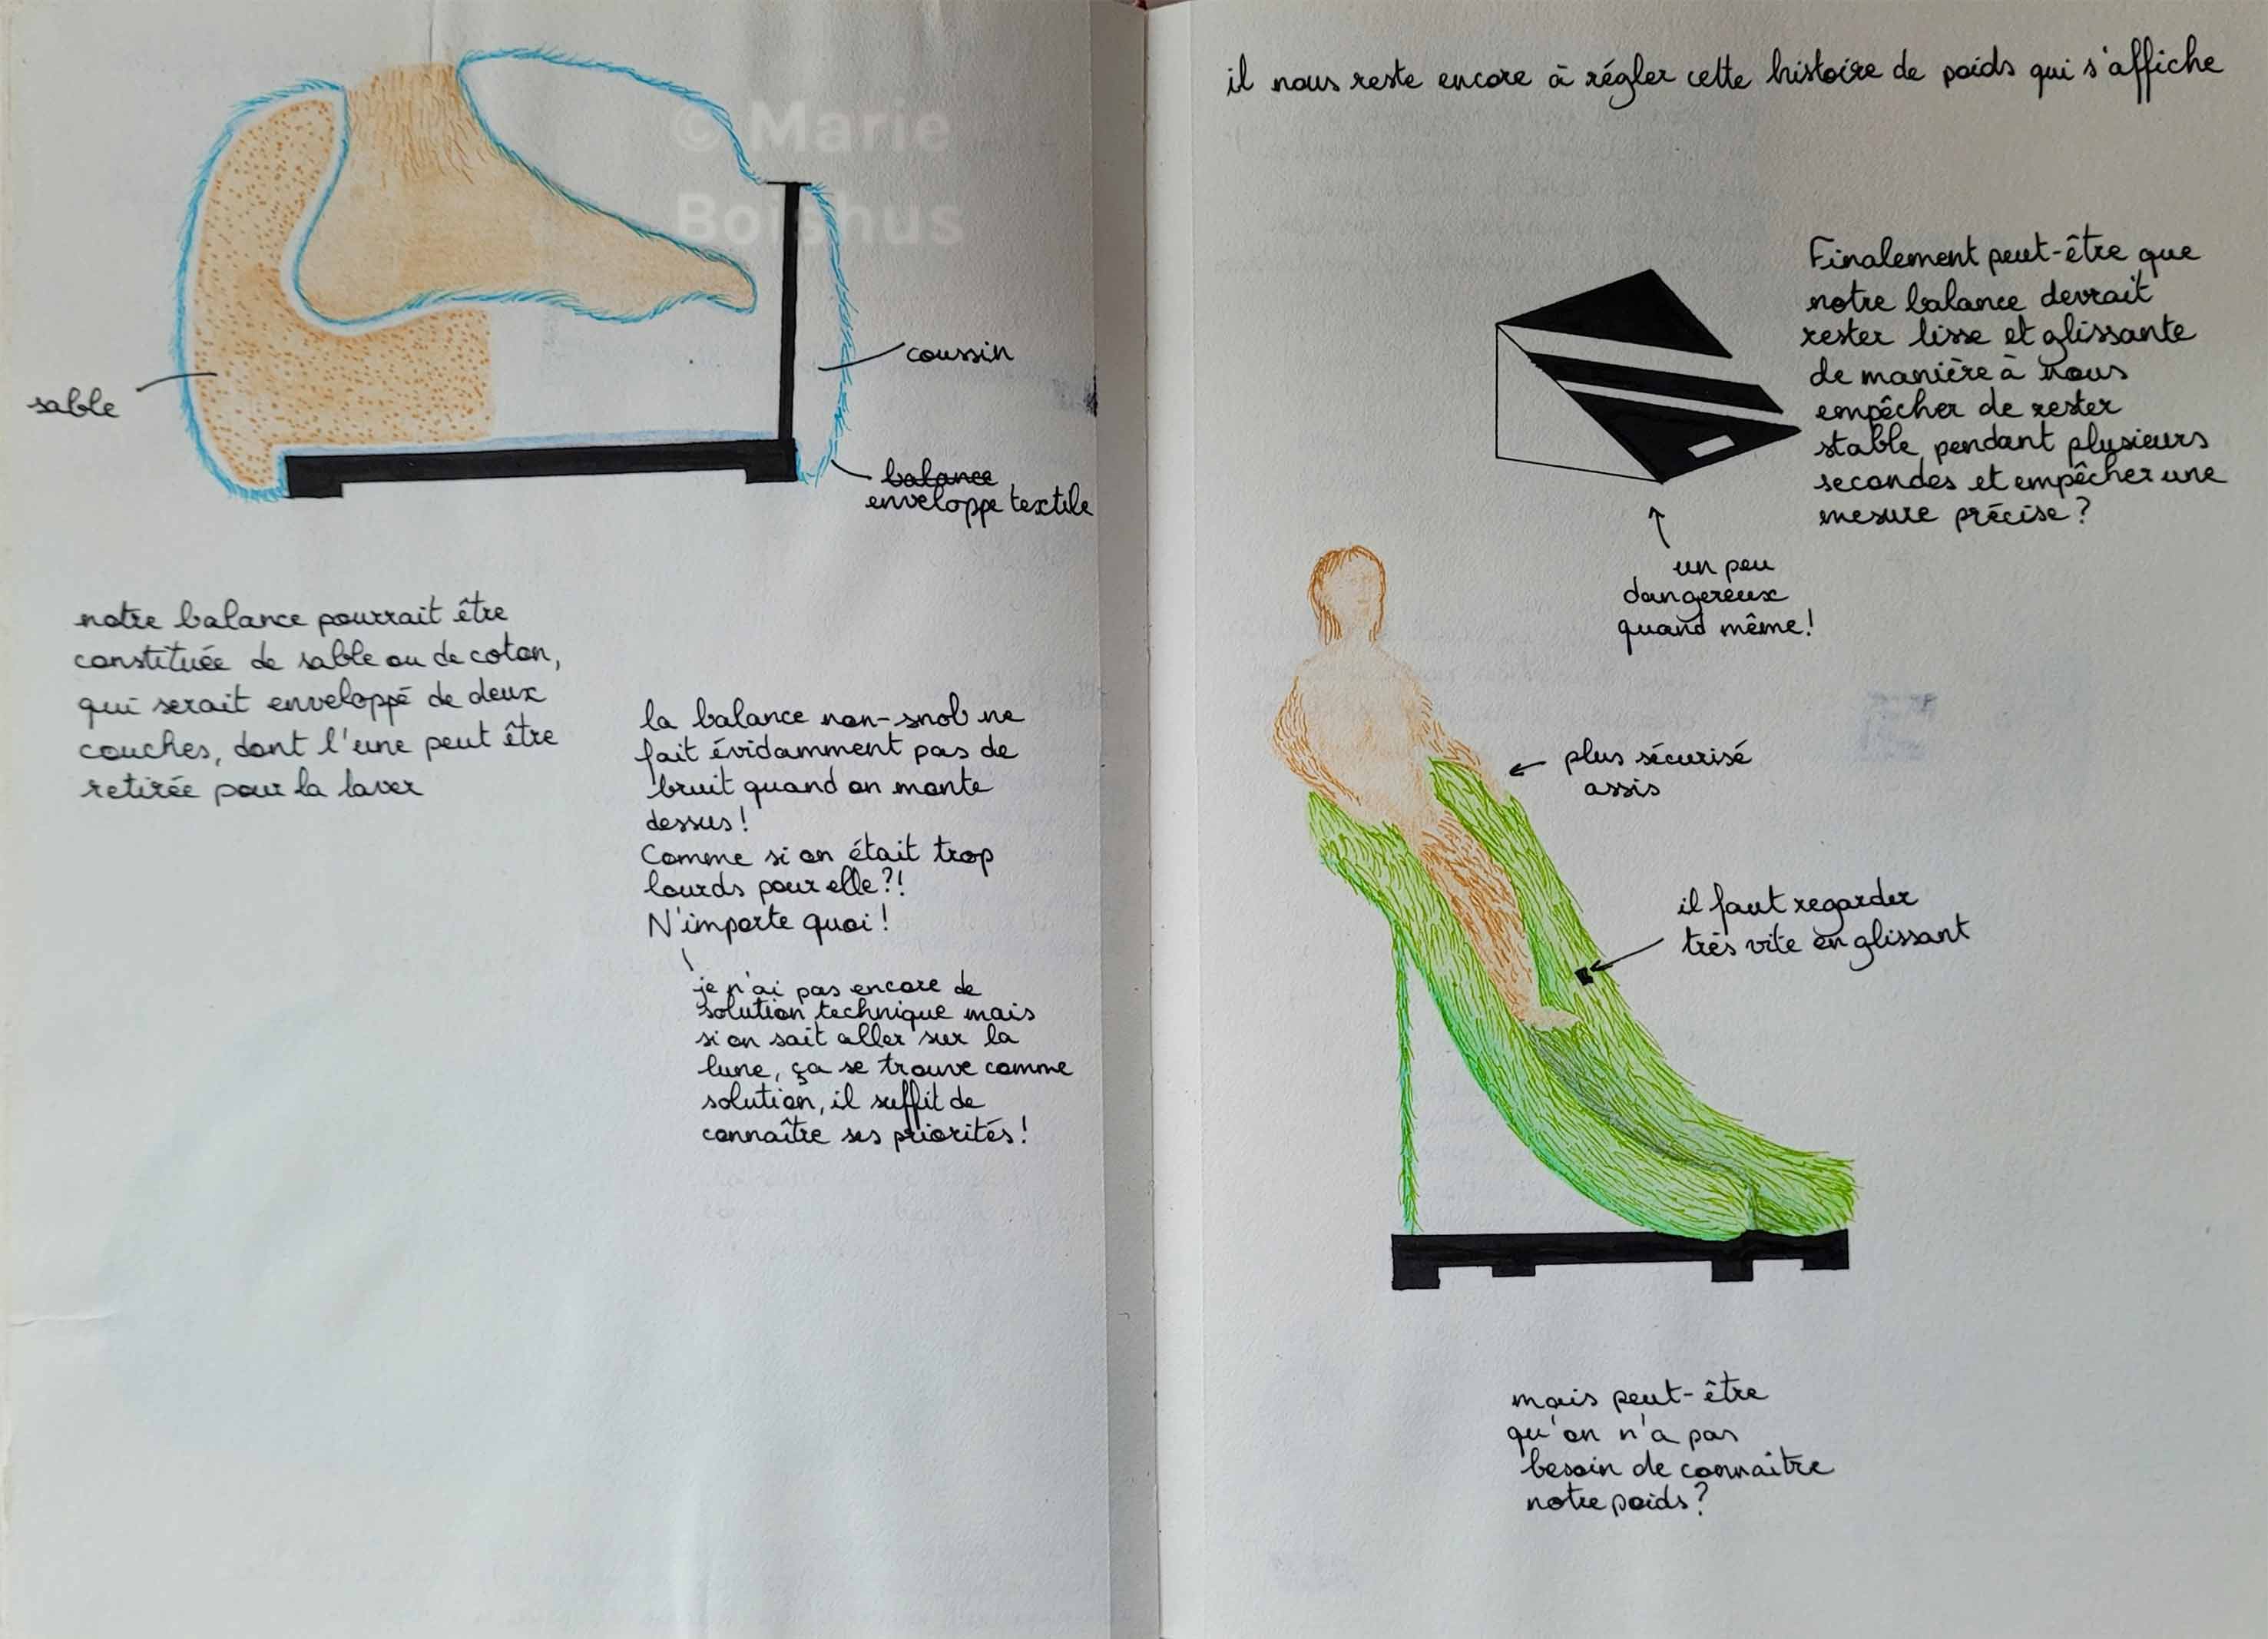 © Marie
Boishus
sable
coussin
balance
enveloppe textile
notre balance pourrait être
constituée de sable ou de coton,
qui serait enveloppé de deux
couches, dont l'une peut être
retirée pour la laver
la balance non-snob ne
fait évidamment pas de
bruit quand on monte
dessus!
Comme si on était trop
lourds pour elle?!
N'importe quoi!
je n'ai pas encore de
solution technique mais
si on sait aller sur la
lune, ça se trouve comme
solution, il suffit de
connaître ses priorités!
il nous reste encore à régler cette histoire de poids qui s'affiche
Finalement peut-être que
notre balance devrait
rester lisse et glissante
de manière à nous
empêcher de rester
stable pendant plusieurs
secondes et empêcher une
mesure précise?
un peu
dangereux
quand même!
plus sécurisé
assis
il faut regarder
très vite en glissant
mais peut-être
qu'on n'a pas
besoin de connaître
notre poids?